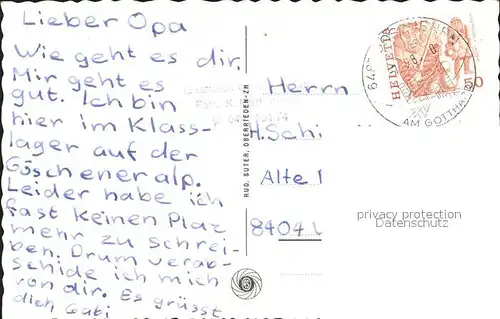 Lieber Opa
Wie geht es dir.
Mir geht es
gut. Ich bin
hier im Klass-
lager auf der
Göscheneralp.
Leider habe ich
fast keinen Plaz
mehr zu schrei-
ben. Drum verab-
schide ich mich
von dir. Es grüsst
dich, Gabi
RUD. SUTER, OBERRIEDEN-ZH
Herrn
H. Schi
Alte 1
8404
HELVETIA
50
AM GOTTHA
privacy protection
Datenschutz